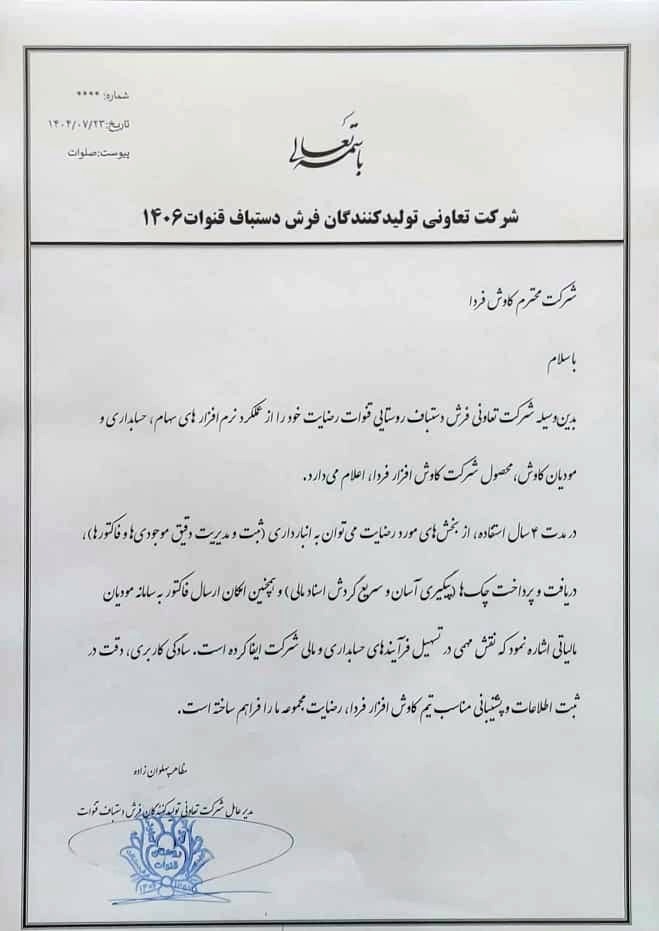 شماره: ****
تاریخ:۱۴۰۴/۰۷/۲۳
پیوست:صلوات
باسمه تعالی
شرکت تعاونی تولیدکنندگان فرش دستباف قنوات۱۴۰۶
شرکت محترم کاوش فردا
باسلام
بدین‌وسیله شرکت تعاونی فرش دستباف روستایی قنوات رضایت خود را از عملکرد نرم‌افزار های سهام، حسابداری و
مودیان کاوش، محصول شرکت کاوش افزار فردا، اعلام می‌دارد.
در مدت ۴ سال استفاده، از بخش‌های مورد رضایت می‌توان به انبارداری (ثبت و مدیریت دقیق موجودی‌ها و فاکتورها)،
دریافت و پرداخت چک‌ها (پیگیری آسان و سریع گردش اسناد مالی) و همچنین امکان ارسال فاکتور به سامانه مودیان
مالیاتی اشاره نمود که نقش مهمی در تسهیل فرآیندهای حسابداری و مالی شرکت ایفا کرده است. سادگی کاربری، دقت در
ثبت اطلاعات و پشتیبانی مناسب تیم کاوش افزار فردا، رضایت مجموعه ما را فراهم ساخته است.
مظاهر پهلوان زاده
مدیرعامل شرکت تعاونی تولیدکنندگان فرش دستباف قنوات
قنوات